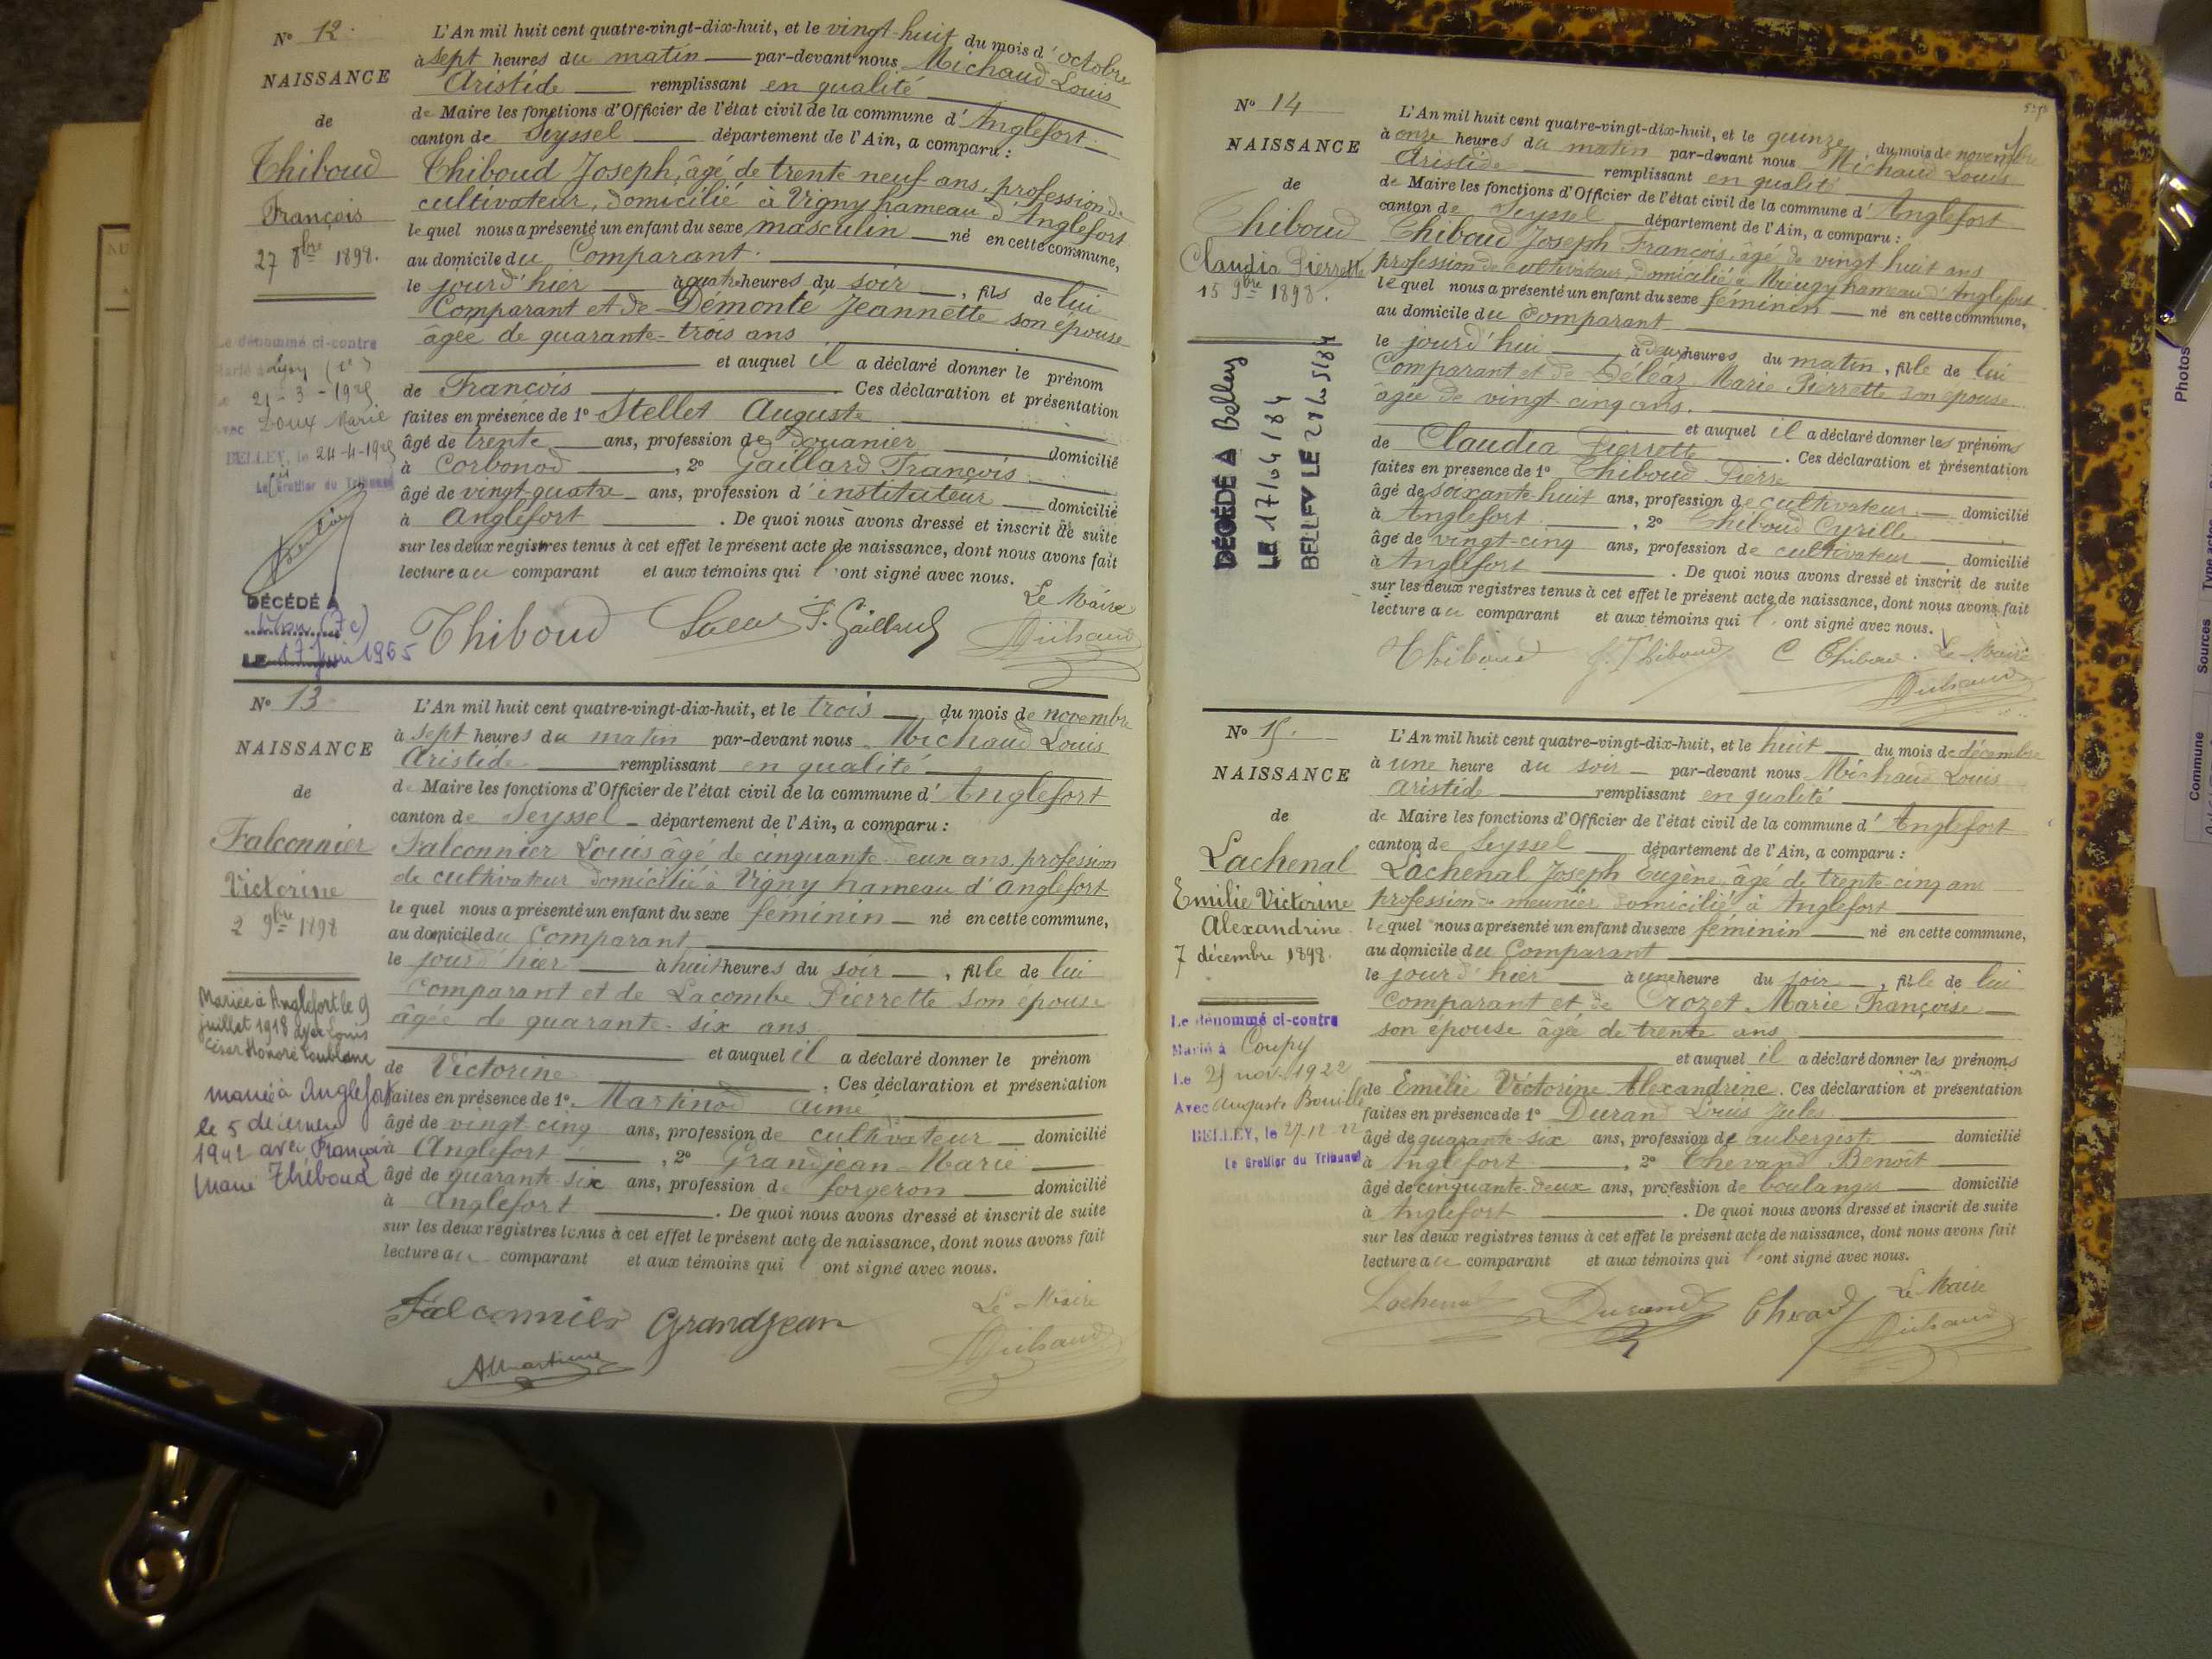 N° 12.
NAISSANCE
de
Thiboud
François
27 8bre 1898.
Le dénommé ci-contre
Marié à Lyon
21-3-1925
avec Doux Marie
BELLEY, le 24-4-1925
Le Greffier du Tribunal
DÉCÉDÉ A
Lyon (7e)
LE 17 Juin 1965
L'An mil huit cent quatre-vingt-dix-huit, et le vingt-huit du mois d'octobre
à sept heures du matin par-devant nous Michaud Louis
Aristide remplissant en qualité
de Maire les fonctions d'Officier de l'état civil de la commune d'Anglefort
canton de Seyssel département de l'Ain, a comparu :
Thiboud Joseph, âgé de trente neuf ans, profession de
cultivateur, domicilié à Vigny hameau d'Anglefort
le quel nous a présenté un enfant du sexe masculin né en cette commune,
au domicile du Comparant.
le jour d'hier à quatre heures du soir, fils de lui
Comparant et de Démonté Jeannette son épouse
âgée de quarante-trois ans
et auquel il a déclaré donner le prénom
de François. Ces déclaration et présentation
faites en présence de 1° Stellet Auguste
âgé de trente ans, profession de douanier domicilié
à Corbonod, 2° Gaillard François
âgé de vingt-quatre ans, profession d'instituteur domicilié
à Anglefort. De quoi nous avons dressé et inscrit de suite
sur les deux registres tenus à cet effet le présent acte de naissance, dont nous avons fait
lecture au comparant et aux témoins qui l'ont signé avec nous.
Le Maire
Thiboud F. Gaillard Michaud
N° 13
NAISSANCE
de
Falconnier
Victorine
2 9bre 1898
Mariée à Anglefort le 9
juillet 1918 avec Louis
César Honoré Loublanc
mariée à Anglefort
le 5 décembre
1942 avec François
Marie Thiboud
L'An mil huit cent quatre-vingt-dix-huit, et le trois du mois de novembre
à sept heures du matin par-devant nous Michaud Louis
Aristide remplissant en qualité
de Maire les fonctions d'Officier de l'état civil de la commune d'Anglefort
canton de Seyssel département de l'Ain, a comparu :
Falconnier Louis âgé de cinquante-deux ans, profession
de cultivateur domicilié à Vigny hameau d'Anglefort
le quel nous a présenté un enfant du sexe féminin né en cette commune,
au domicile du Comparant
le jour d'hier à huit heures du soir, fille de lui
comparant et de Lacombe Pierrette son épouse
âgée de quarante-six ans
et auquel il a déclaré donner le prénom
de Victorine. Ces déclaration et présentation
faites en présence de 1° Martinod Aimé
âgé de vingt cinq ans, profession de cultivateur domicilié
à Anglefort, 2° Grandjean Marie
âgé de quarante-six ans, profession de forgeron domicilié
à Anglefort. De quoi nous avons dressé et inscrit de suite
sur les deux registres tenus à cet effet le présent acte de naissance, dont nous avons fait
lecture au comparant et aux témoins qui l'ont signé avec nous.
Falconnier Grandjean Le Maire
A Martinod Michaud
N° 14
NAISSANCE
de
Thiboud
Claudia Pierrette
15 9bre 1898.
DÉCÉDÉ A Belley
LE 17/04/84
BELLEY LE
L'An mil huit cent quatre-vingt-dix-huit, et le quinze du mois de novembre
à onze heures du matin par-devant nous Michaud Louis
Aristide remplissant en qualité
de Maire les fonctions d'Officier de l'état civil de la commune d'Anglefort
canton de Seyssel département de l'Ain, a comparu :
Thiboud Joseph François, âgé de vingt huit ans
profession de cultivateur domicilié à Mieugy hameau d'Anglefort
le quel nous a présenté un enfant du sexe féminin né en cette commune,
au domicile du Comparant
le jour d'hui à deux heures du matin, fille de lui
Comparant et de Déléaz Marie Pierrette son épouse
âgée de vingt cinq ans.
et auquel il a déclaré donner les prénoms
de Claudia Pierrette. Ces déclaration et présentation
faites en présence de 1° Thiboud Pierre
âgé de soixante-huit ans, profession de cultivateur domicilié
à Anglefort, 2° Thiboud Cyrille
âgé de vingt-cinq ans, profession de cultivateur domicilié
à Anglefort. De quoi nous avons dressé et inscrit de suite
sur les deux registres tenus à cet effet le présent acte de naissance, dont nous avons fait
lecture au comparant et aux témoins qui l'ont signé avec nous.
Thiboud Thiboud C Thiboud Le Maire
Michaud
N° 15.
NAISSANCE
de
Lachenal
Emilie Victorine
Alexandrine
7 décembre 1898.
Le dénommé ci-contre
Marié à Coupy
Le nov. 1922
Avec Auguste
BELLEY, le 27.12.22
Le Greffier du Tribunal
L'An mil huit cent quatre-vingt-dix-huit, et le huit du mois de décembre
à une heure du soir par-devant nous Michaud Louis
Aristide remplissant en qualité
de Maire les fonctions d'Officier de l'état civil de la commune d'Anglefort
canton de Seyssel département de l'Ain, a comparu :
Lachenal Joseph Eugène, âgé de trente-cinq ans
profession de meunier domicilié à Anglefort
le quel nous a présenté un enfant du sexe féminin né en cette commune,
au domicile du Comparant
le jour d'hier à une heure du soir, fille de lui
Comparant et de Crozet Marie Françoise
son épouse âgée de trente ans
et auquel il a déclaré donner les prénoms
de Emilie Victorine Alexandrine. Ces déclaration et présentation
faites en présence de 1° Durand Louis Jules
âgé de quarante-six ans, profession de aubergiste domicilié
à Anglefort, 2° Chevand Benoît
âgé de cinquante-deux ans, profession de boulanger domicilié
à Anglefort. De quoi nous avons dressé et inscrit de suite
sur les deux registres tenus à cet effet le présent acte de naissance, dont nous avons fait
lecture au comparant et aux témoins qui l'ont signé avec nous.
Lachenal Durand Le Maire
Michaud
Photos
Type actes
Sources
Commune